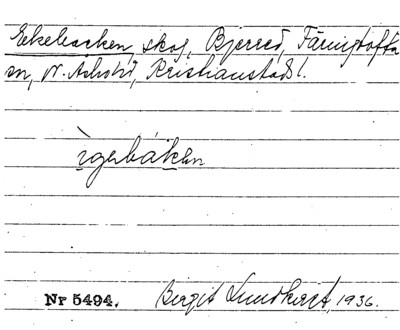 Eekebacken, skog, Bjerred, Färingtofta
sn, N. Åsbohd, Kristianstads l.
ìgerbákęn
Nr 5494. Birgit Lundkvist, 1936.